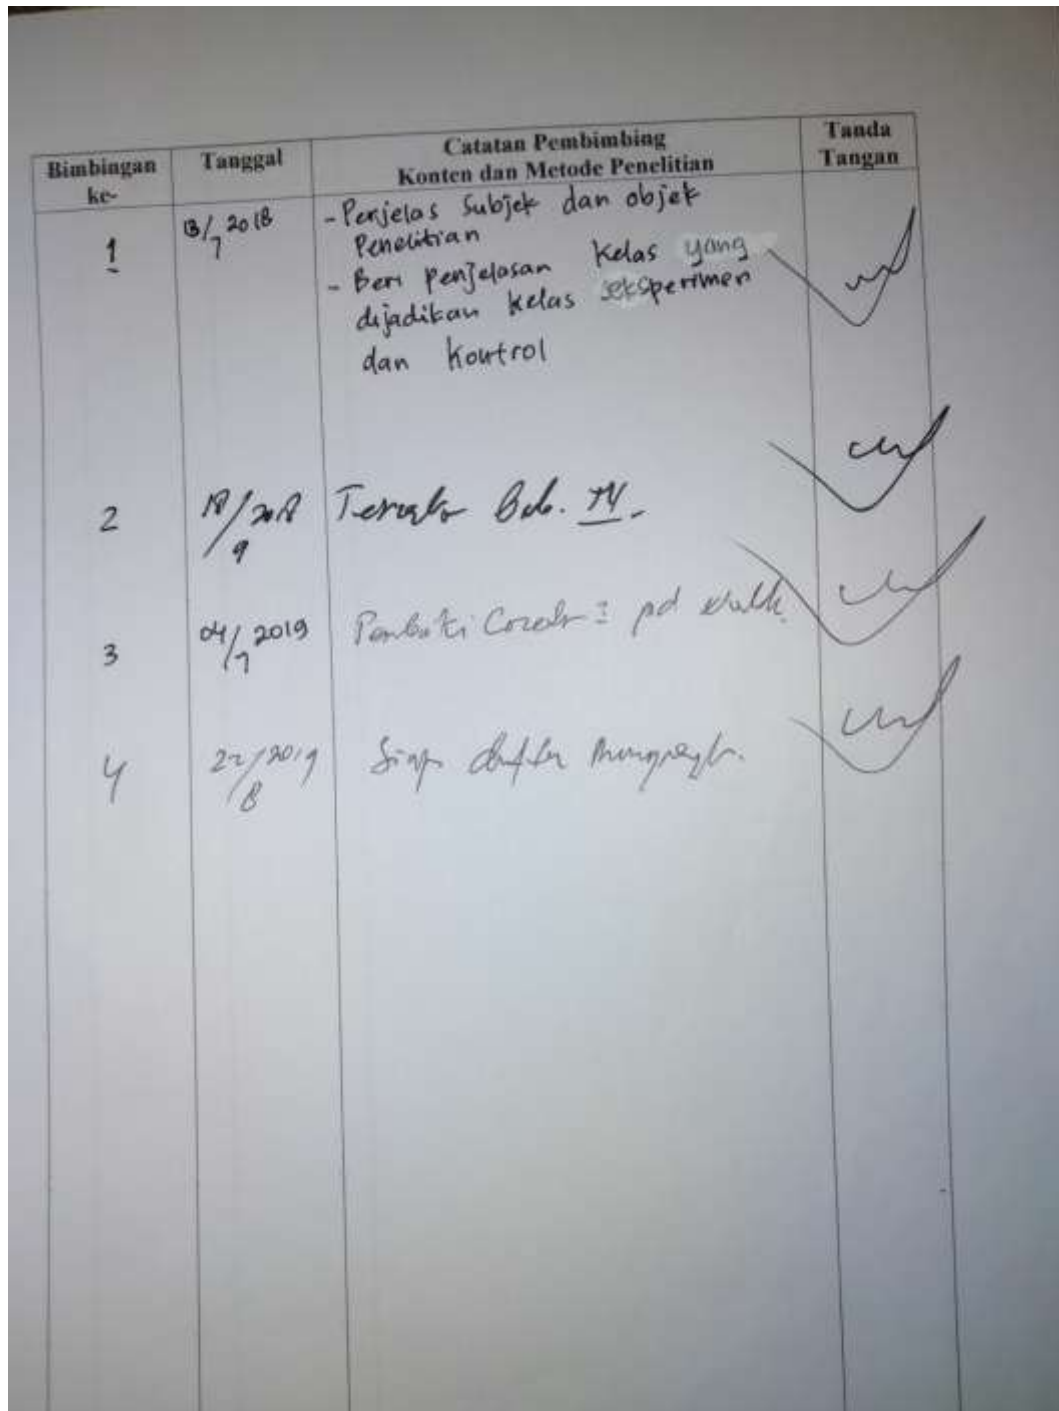 Bimbingan ke-
Tanggal
Catatan Pembimbing
Konten dan Metode Penelitian
Tanda Tangan
1
13/7 2018
- Perjelas Subjek dan objek
Penelitian
- Beri penjelasan kelas yang
dijadikan kelas eksperimen
dan kontrol
2
18/9 2018
Bab. IV.
3
04/7 2019
Perbaiki pd
4
22/8 2019
Siap